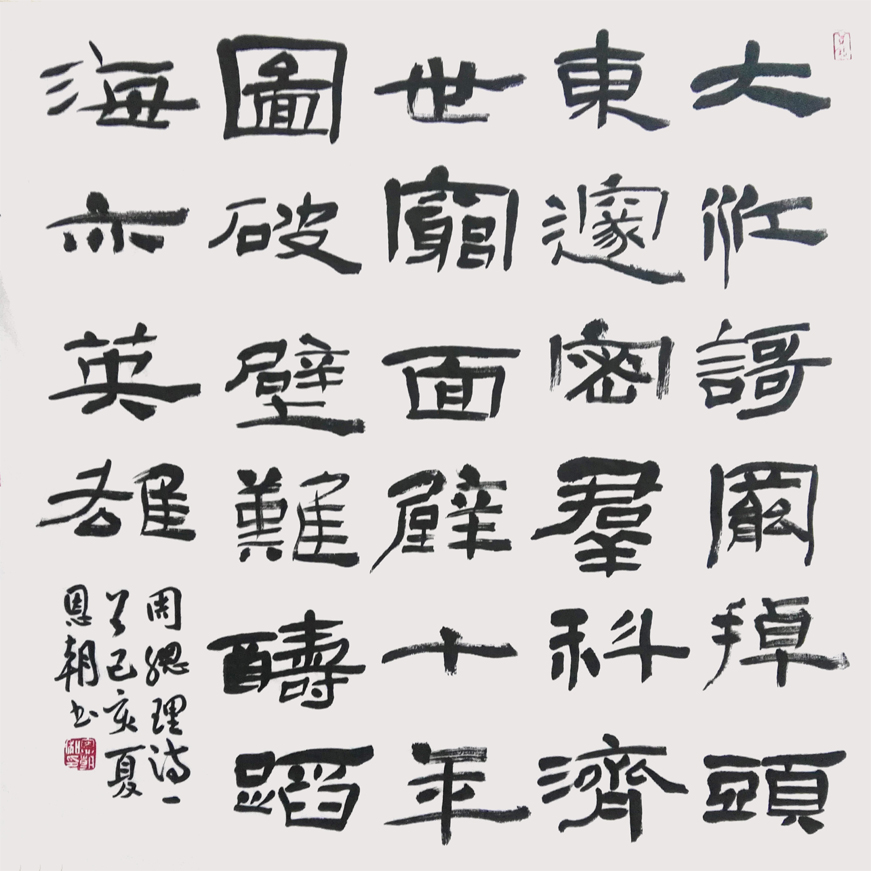 大江謌罷掉頭
東邃密羣科濟
世窮面壁十年
圖破壁難醻蹈
海亦英雄
周總理詩一
首己亥夏
恩朝书